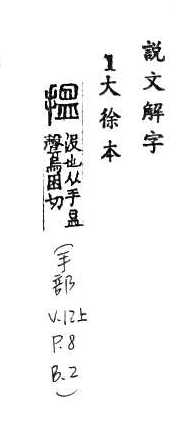 説文解字
1大徐本
搵 沒也从手昷
聲烏困切
(手部
V.12上
P.8
B.2)